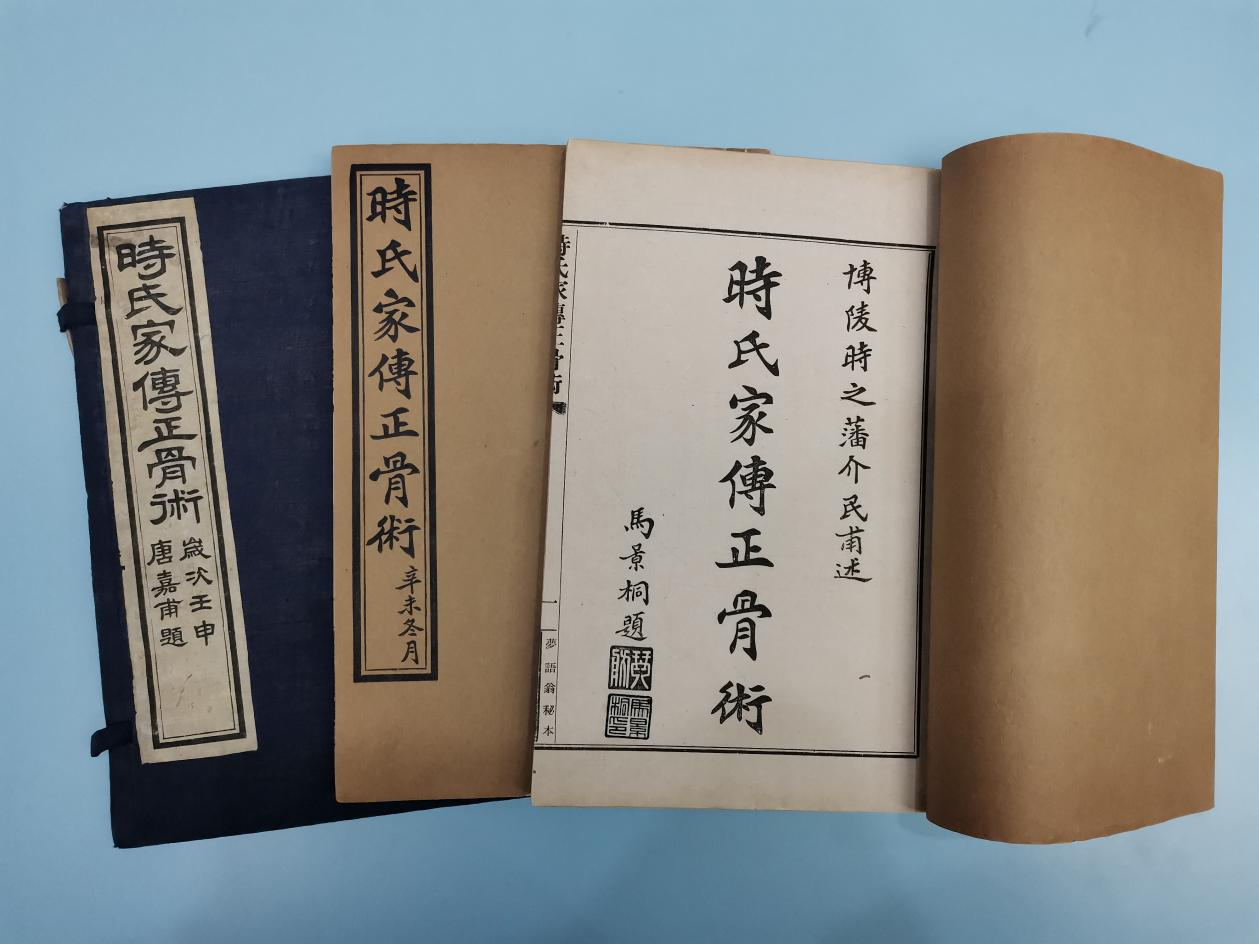 時氏家傳正骨術
歲次壬申
唐嘉甫題
時氏家傳正骨術
辛未冬月
博陵時之藩介民甫述
時氏家傳正骨術
馬景桐題
馬景桐印
時氏家傳正骨術
一
夢語翁秘本